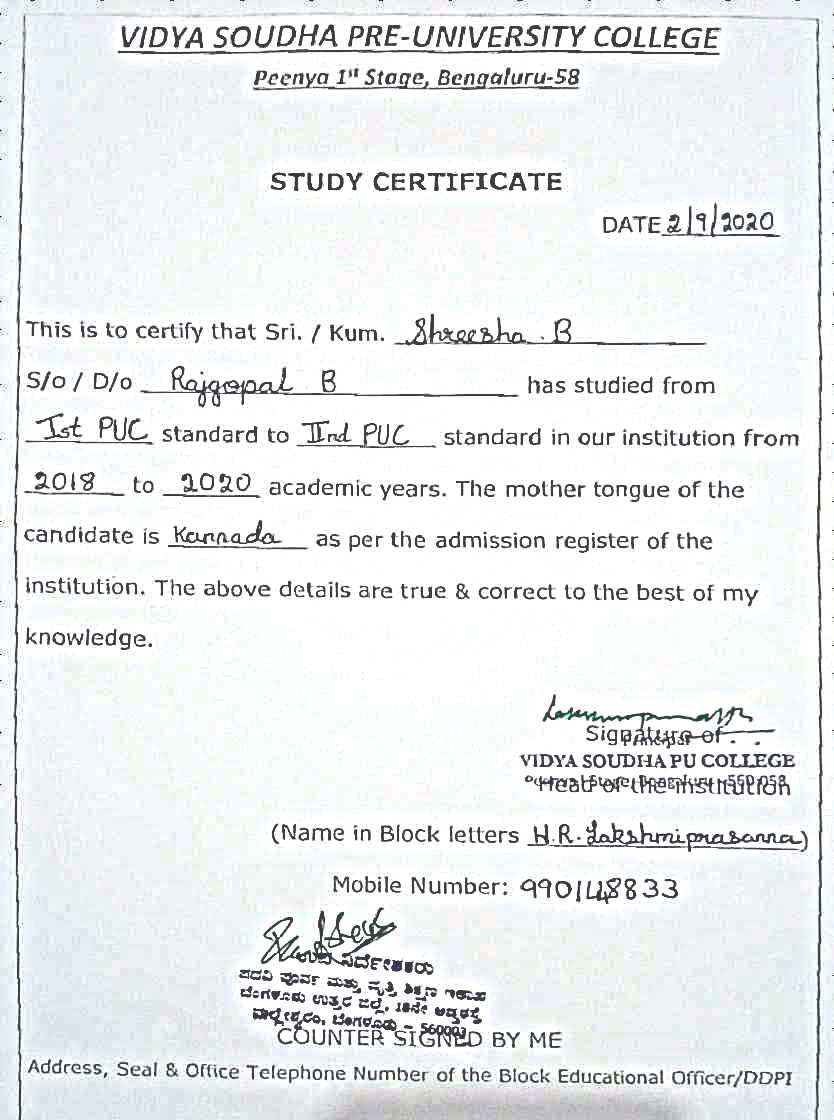 VIDYA SOUDHA PRE-UNIVERSITY COLLEGE
Peenya 1st Stage, Bengaluru-58
STUDY CERTIFICATE
DATE 2/9/2020
This is to certify that Sri. / Kum. Shreesha . B
S/o / D/o Rajgopal B has studied from
Ist PUC standard to IInd PUC standard in our institution from
2018 to 2020 academic years. The mother tongue of the
candidate is Kannada as per the admission register of the
institution. The above details are true & correct to the best of my
knowledge.
Signature of
VIDYA SOUDHA PU COLLEGE
Head of the institution
(Name in Block letters H.R. Lakshmiprasanna)
Mobile Number: 990148833
ನಿರ್ದೇಶಕರು
ಪದವಿ ಪೂರ್ವ ಮತ್ತು ವೃತ್ತಿ ಶಿಕ್ಷಣ ಇಲಾಖೆ
ಬೆಂಗಳೂರು ಉತ್ತರ ಜಿಲ್ಲೆ, 18ನೇ ಅಡ್ಡರಸ್ತೆ
ಮಲ್ಲೇಶ್ವರಂ, ಬೆಂಗಳೂರು - 560003
COUNTER SIGNED BY ME
Address, Seal & Office Telephone Number of the Block Educational Officer/DDPI